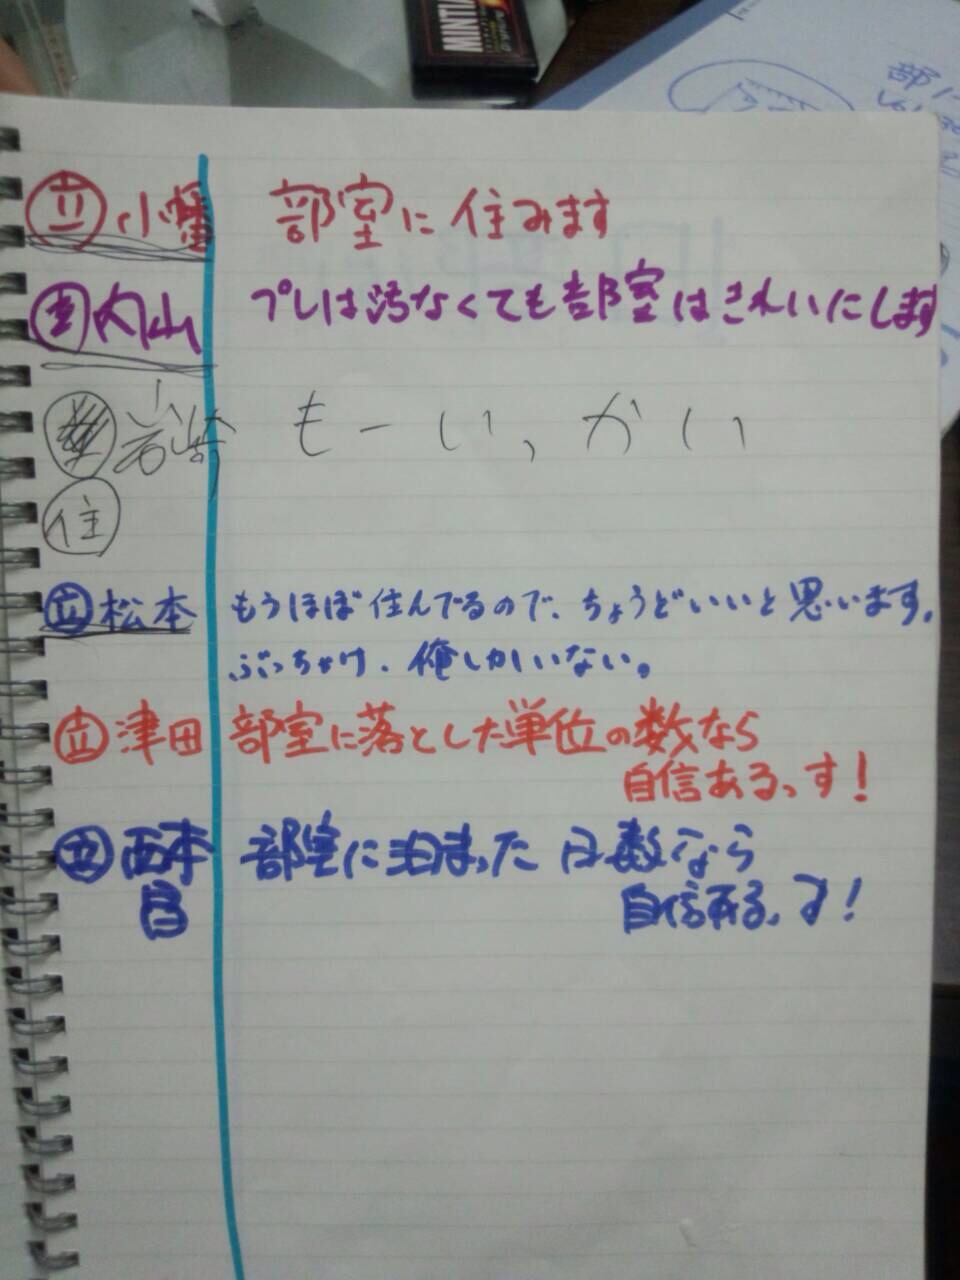 MINTIA
部
立 小幡 部室に住みます
内山 プレは汚なくても部室はきれいにします
岩崎 もーいっかい
住
立 松本 もうほぼ住んでるので、ちょうどいいと思います。
ぶっちゃけ、俺しかいない。
立 津田 部室に落とした単位の数なら
自信あるっす!
立 西本 部室に泊まった日数なら
自信あるっす!